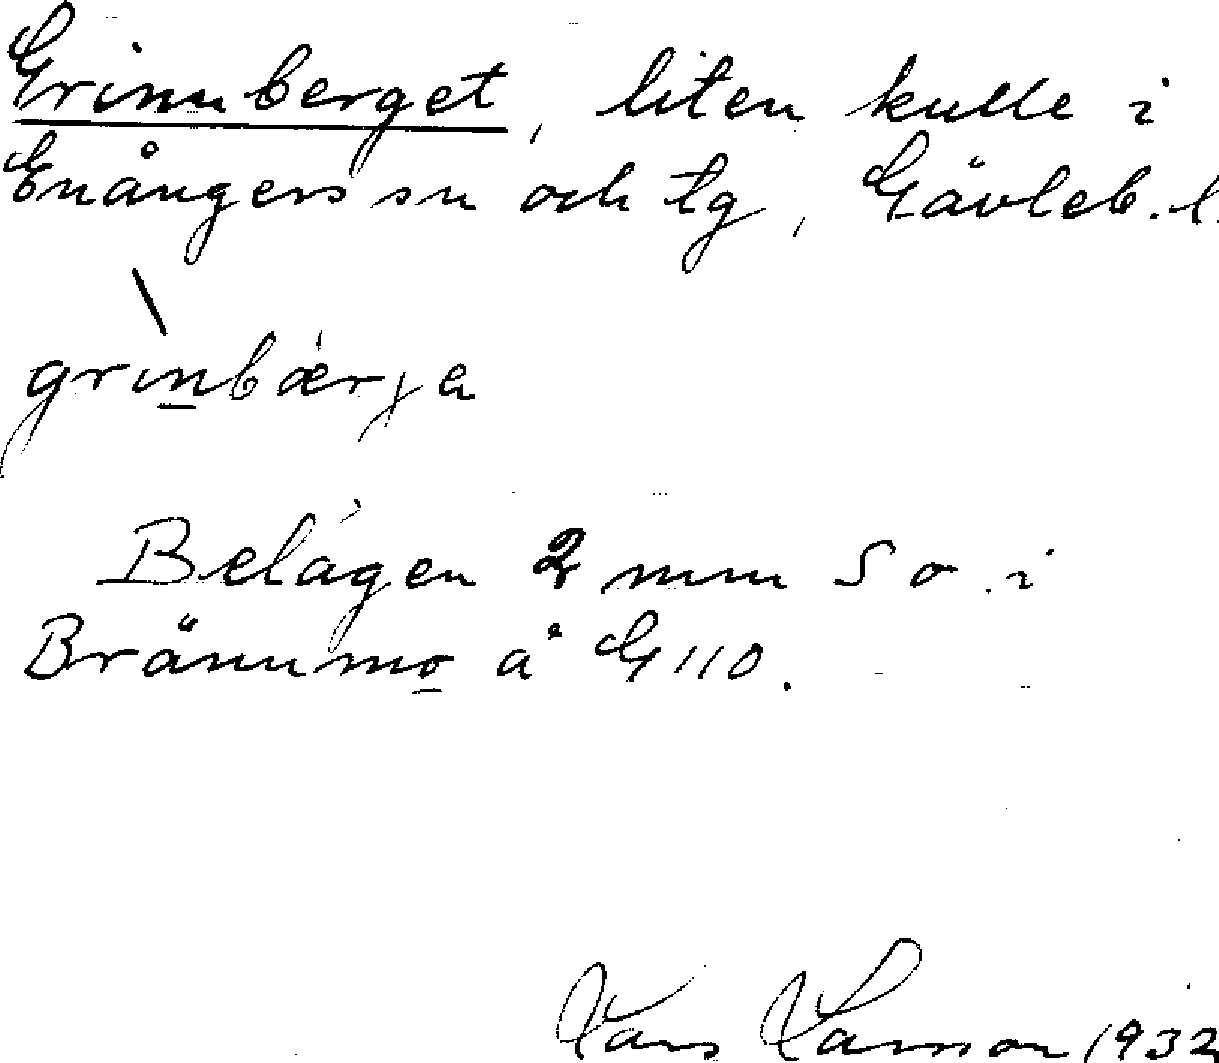 Grinnberget, liten kulle i
Enångers sn och tg, Gävleb. l.
grìnbǽrja
Belägen 2 mm S o. i
Brännmo å G 110.
Lars Larsson 1932